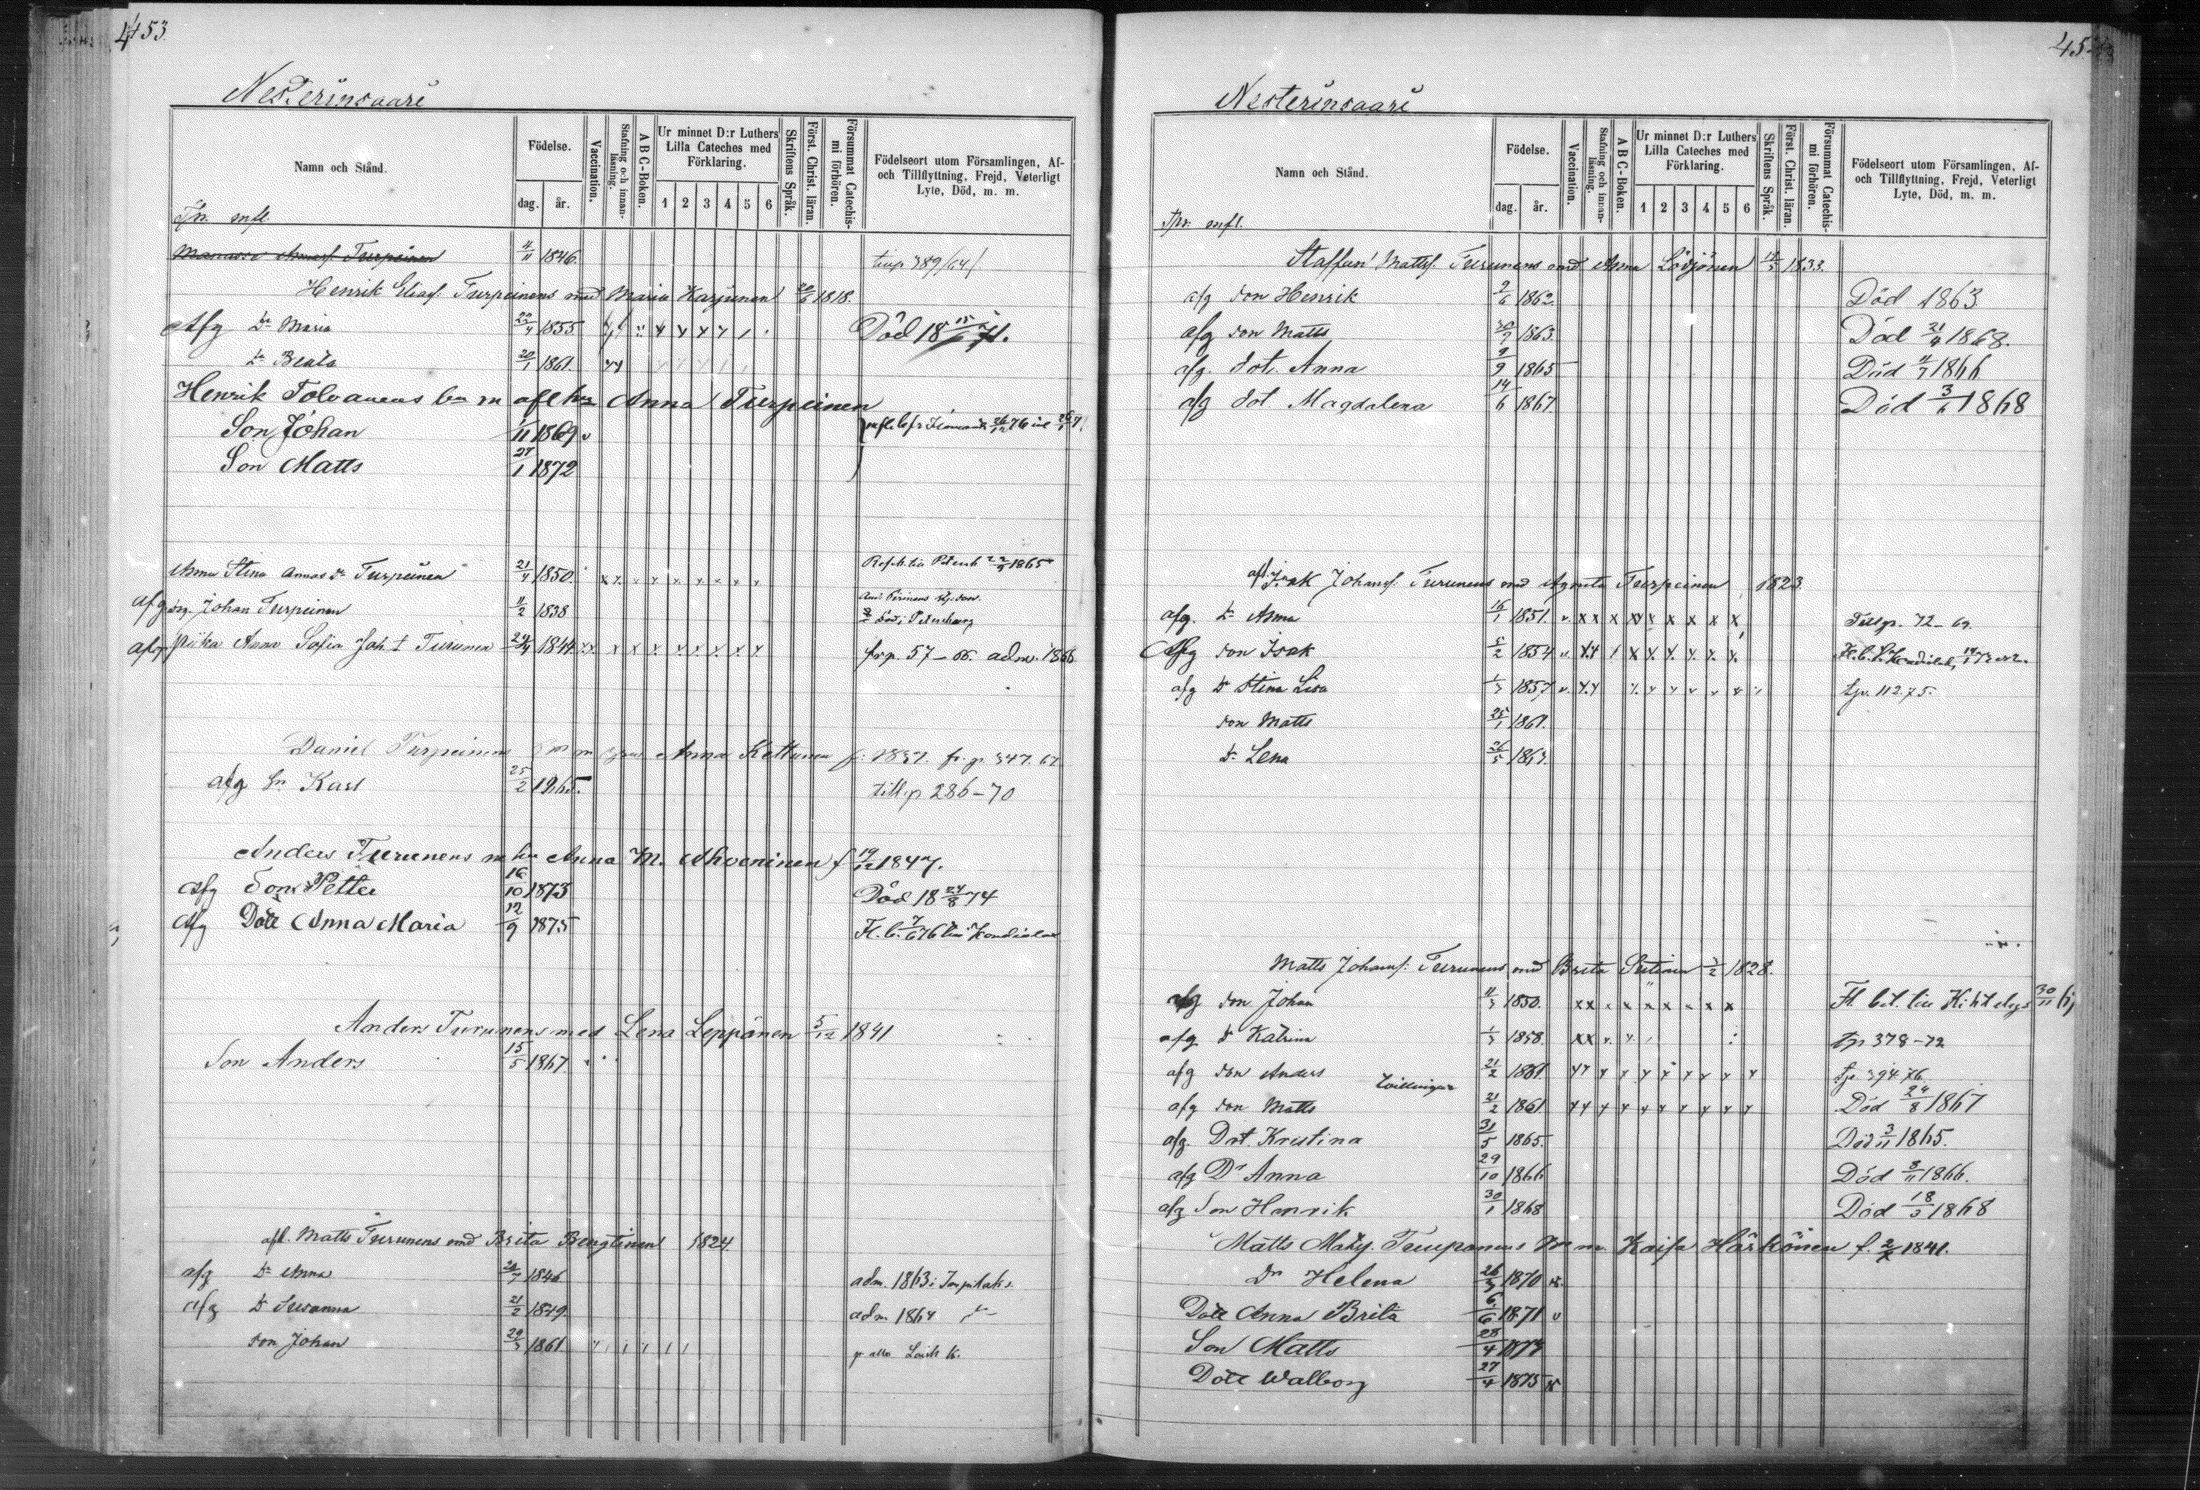 453
Nesterinsaari
Namn och Stånd.
Födelse.
dag. år.
Vaccination.
Stafning och innanläsning.
A B C-Boken.
Ur minnet D:r Luthers Lilla Cateches med Förklaring.
1 2 3 4 5 6
Skriftens Språk.
Först. Christ. läran.
Försummat Catechismi förhören.
Födelseort utom Församlingen, Af- och Tillflyttning, Frejd, Veterligt Lyte, Död, m. m.
Turpeinen 4/11 1846. 389/64
Henrik Eliass. Turpeinens med Maria Karjunen 1818.
Afg Dr Maria 22/4 1855 Död 18 71.
Dr Beata 20/1 1861
Henrik Tolvanens Anna Turpeinen
Son Johan 1/11 1869
Son Matts 27/1 1872
Anna Stina Turpeinen 21/4 1850. 1865
afg Johan Turpeinen 11/2 1838
afg Anna Sofia Joh. Turunen 1844 frp. 57–66. adm. 1866
Daniel Turpeinens Anna Kettunen 1837. fr. p. 347. 67
afg Sn Karl 25/2 1865. till p 286–70
Anders Turunens m hu Anna M. Ahveninen f 19/12 1847.
afg Son Petter 16/10 1873 Död 18 24/8 74
afg Dott Anna Maria 12/9 1875 Fl. b. 7/6 76 till Kondialax
Anders Turunens med Lena Leppänen 5/12 1841
Son Anders 15/5 1867
afl. Matts Turunens med Brita Bengtinen 1824.
afg Dr Anna 1846 adm. 1863 i Impilaks
afg Dr Susanna 21/2 1849. adm 1864
Son Johan 1861
Nesterinsaari
Namn och Stånd.
Födelse.
dag. år.
Vaccination.
Stafning och innanläsning.
A B C-Boken.
Ur minnet D:r Luthers Lilla Cateches med Förklaring.
1 2 3 4 5 6
Skriftens Språk.
Först. Christ. läran.
Försummat Catechismi förhören.
Födelseort utom Församlingen, Af- och Tillflyttning, Frejd, Veterligt Lyte, Död, m. m.
Staffan Mattss. Turunens med Anna 1833.
afg Son Henrik 2/6 1862. Död 1863
afg Son Matts 1863. Död 1868.
afg. Dot. Anna 2/9 1865 Död 1866
afg Dot Magdalena 14/6 1867. Död 3/6 1868
afl. Isak Johanss. Turunens med Agneta Turpeinen 1823
afg. Dr Anna 16/1 1851. Till p. 72–69.
Afg Son Isak 5/2 1854
afg Dr Stina Lisa 1/3 1857 tp. 112. 75.
Son Matts 25/1 1861.
Dr Lena 26/5 1863.
Matts Johanss. Turunens med Brita 1828.
afg Son Johan 11/3 1850.
afg Dr Katrina 1/3 1858. tp 378–72
afg Son Anders 21/2 1861. tp 394. 76.
Tvillingar
afg Son Matts 21/2 1861 Död 24/8 1867
afg. Dot. Kristina 31/5 1865. Död 3/11 1865.
afg Dr Anna 29/10 1866 Död 8/11 1866.
afg Son Henrik 30/1 1868 Död 1868
Matts Kaisa Härkönen f. 1841.
Dr Helena 26/3 1870
Dott Anna Brita 6/6 1871
Son Matts 28/4
Dott Walborg 27/4 1875